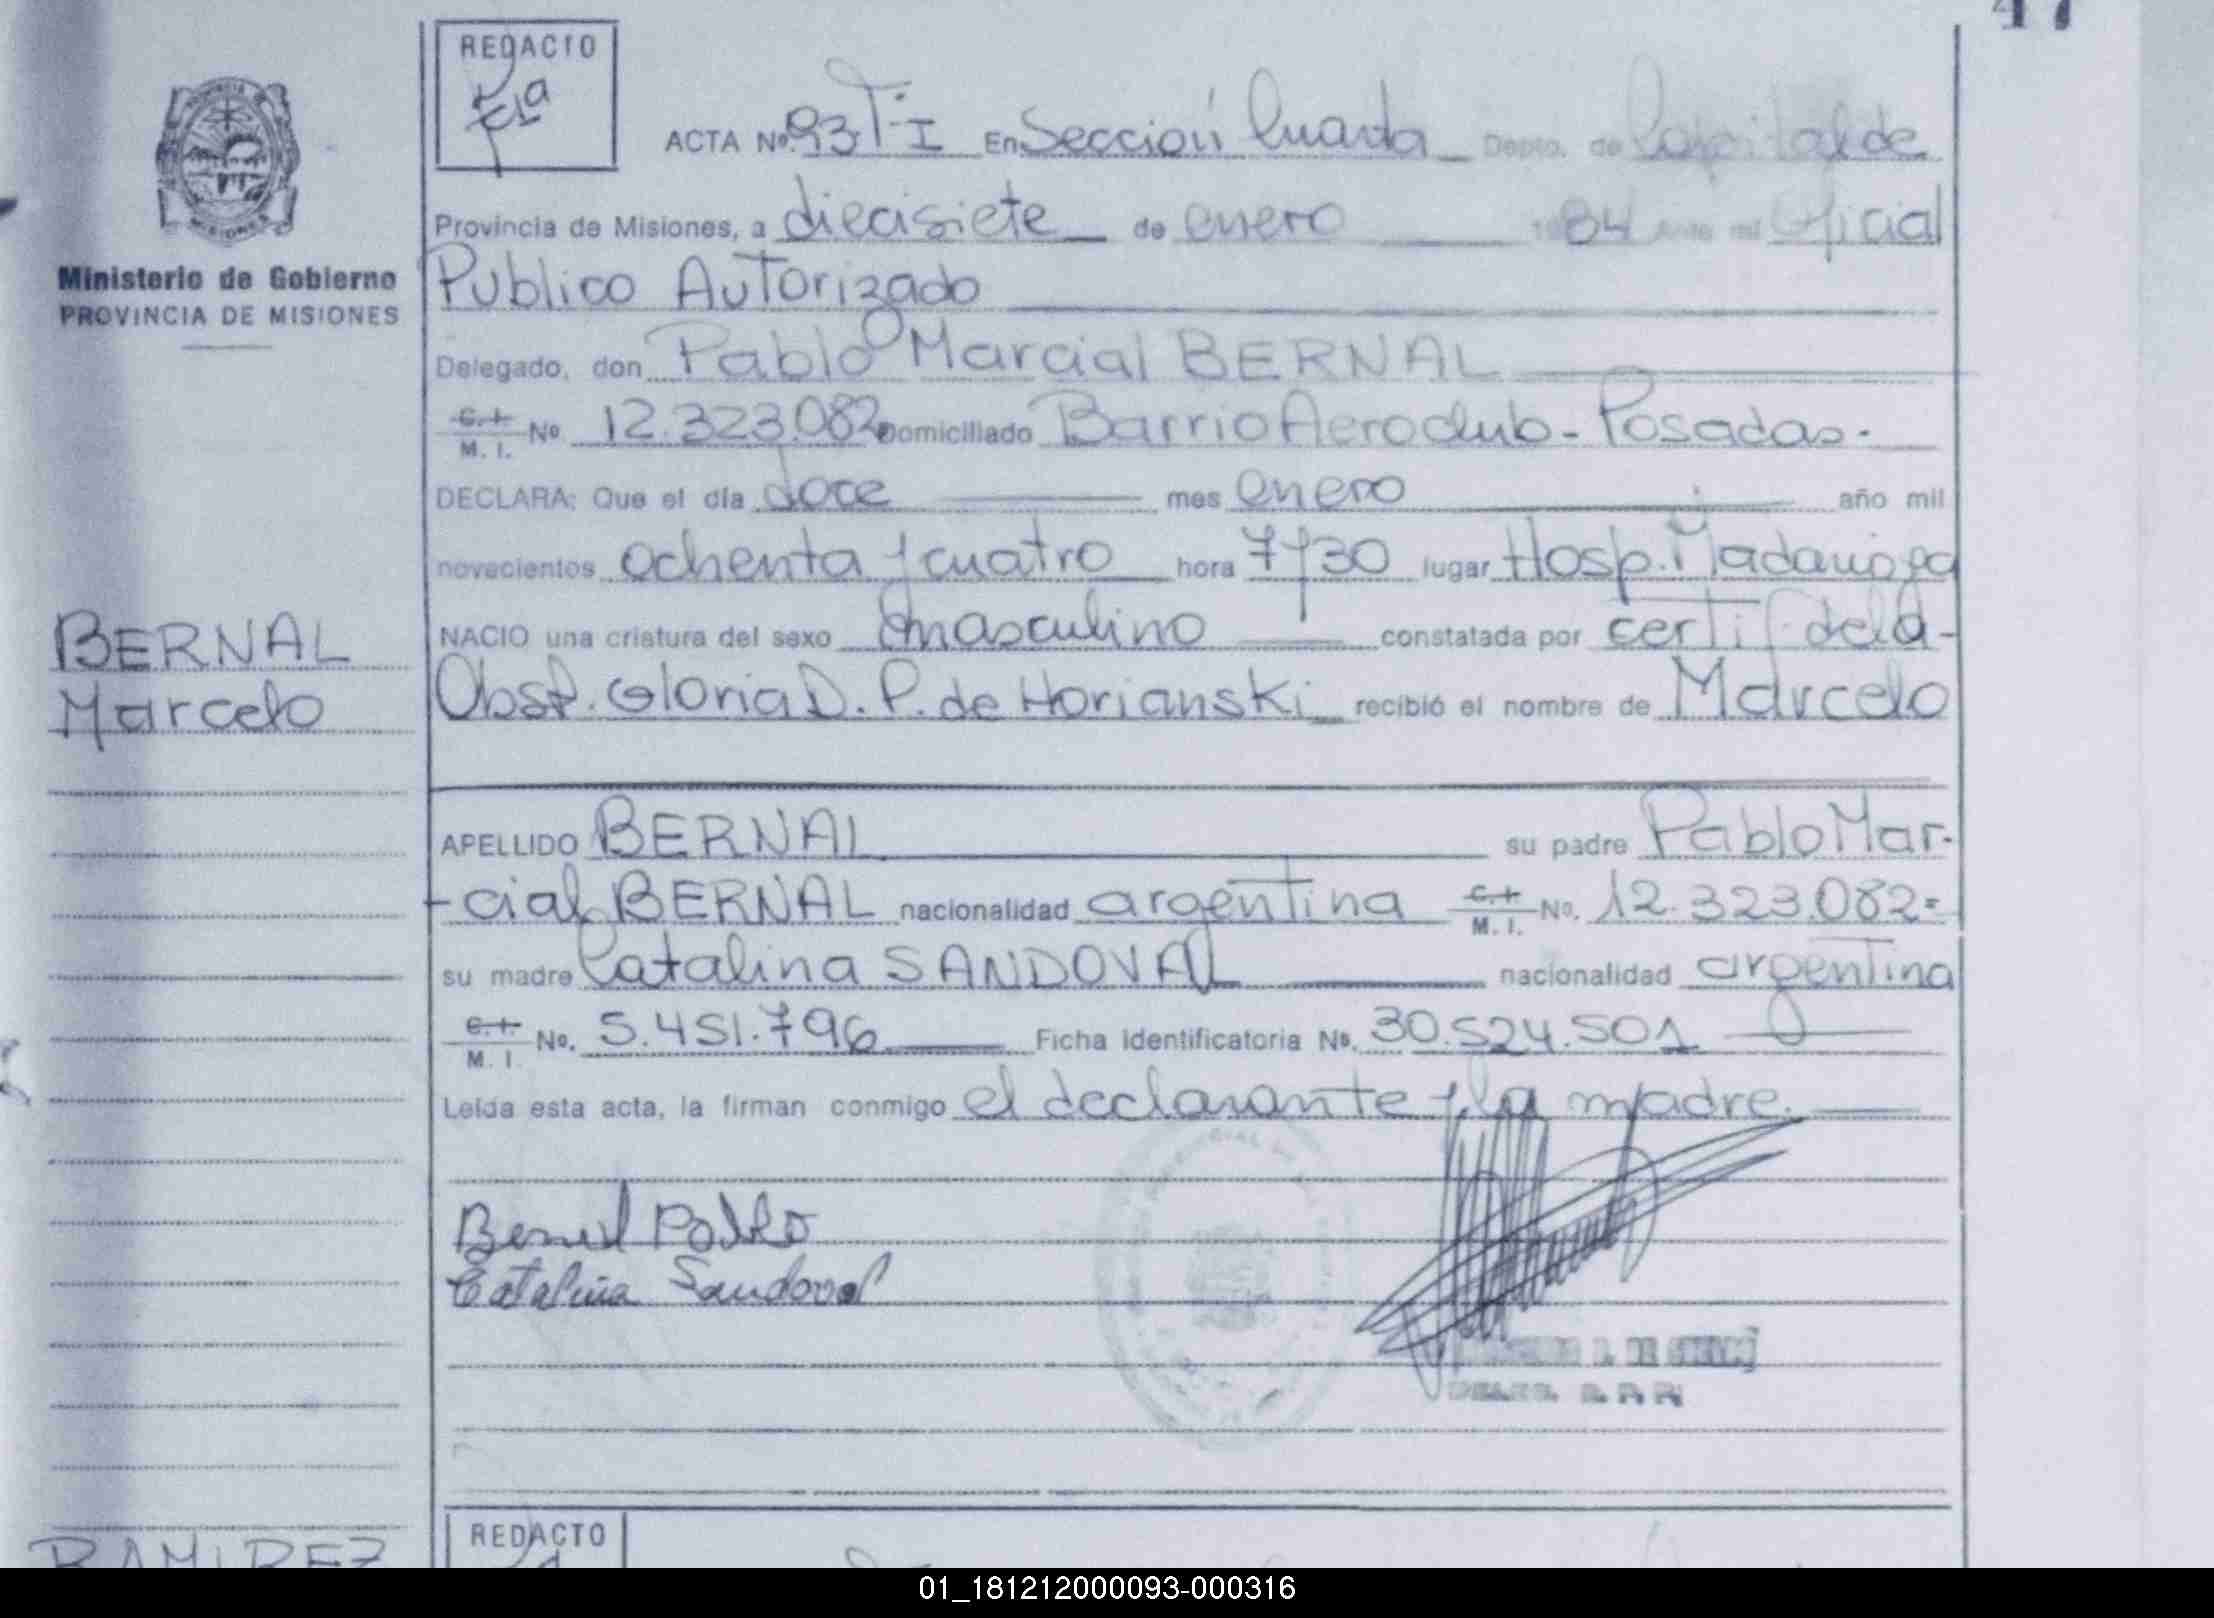 47
REDACTO
ACTA Nº. 93 T-I En Sección Cuarta Depto. de Capital de
Provincia de Misiones, a diecisiete de enero 1984 Ante mi Oficial
Publico Autorizado
Ministerio de Gobierno
PROVINCIA DE MISIONES
Delegado, don Pablo Marcial BERNAL
C.I. M. I. Nº 12.323.082 Domiciliado Barrio Aeroclub - Posadas.
DECLARA: Que el día doce mes enero año mil
novecientos ochenta y cuatro hora 7y30 lugar Hosp. Madariaga
NACIO una criatura del sexo masculino constatada por certif. de la
Obst. Gloria D. P. de Horianski recibió el nombre de Marcelo
BERNAL
Marcelo
APELLIDO BERNAL su padre Pablo Mar-
-cial BERNAL nacionalidad argentina C.I. M. I. Nº. 12.323.082=
su madre Catalina SANDOVAL nacionalidad argentina
C.I. M. I. Nº. 5.451.796 Ficha Identificatoria Nº. 30.524.501
Leída esta acta, la firman conmigo el declarante y la madre.
Bernal Pablo
Catalina Sandoval
REDACTO
RAMIREZ
01_181212000093-000316